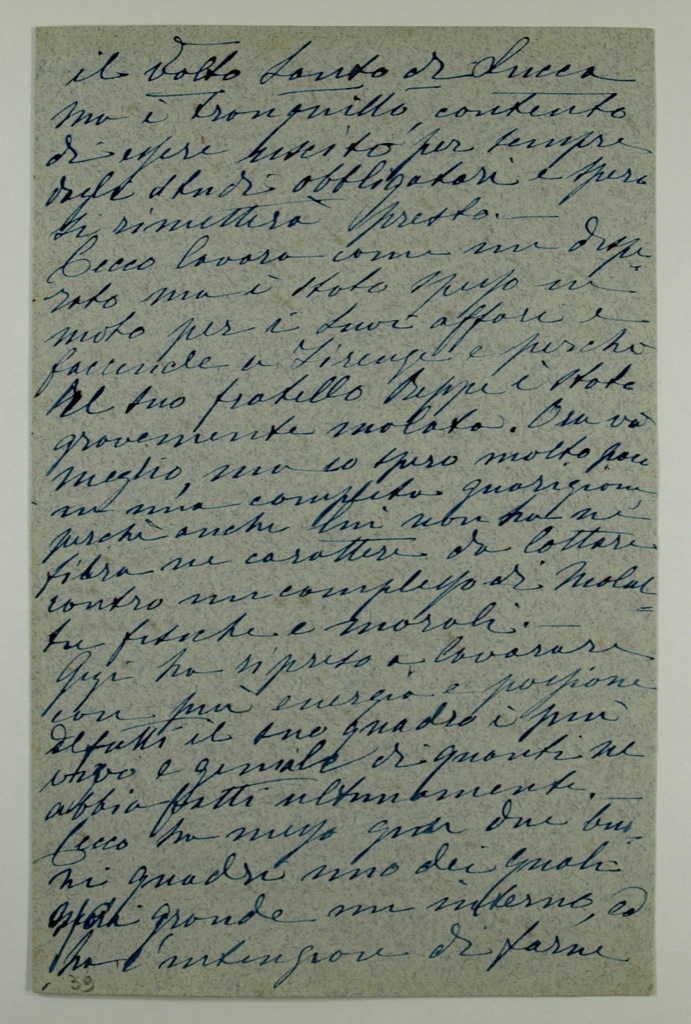 il Volto Santo di Lucca
ma è tranquillo, contento
di essere uscito per sempre
dagli studi obbligatori e spero
si rimetterà presto. —
Cecco lavora come un dispe-
rato ma è stato spesso in
moto per i suoi affari e
faccende a Firenze e perchè
il suo fratello Beppe è stato
gravemente malato. Ora va
meglio, ma io spero molto poco
in una completa guarigione
perchè anche lui non ha nè
fibra ne carattere da lottare
contro un complesso di malat-
tie fisiche e morali. —
Gigi ha ripreso a lavorare
con più energia e passione
difatti il suo quadro è più
vivo e geniale di quanti ne
abbia fatti ultimamente. —
Cecco ha messo giù due buo-
ni quadri uno dei quali
grande un interno, ed
ha l'intenzione di farne
39